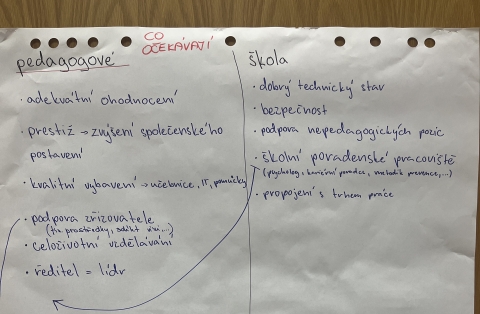 CO
OČEKÁVAJÍ
pedagogové
· adekvátní ohodnocení
· prestiž → zvýšení společenského
postavení
· kvalitní vybavení → učebnice, IT, pomůcky
· podpora zřizovatele
· celoživotní vzdělávání
· ředitel = lídr
škola
· dobrý technický stav
· bezpečnost
· podpora nepedagogických pozic
· školní poradenské pracoviště
(psycholog, kariérní poradce, metodik prevence,...)
· propojení s trhem práce